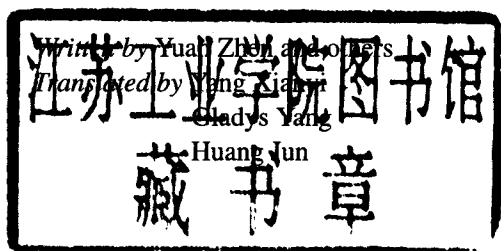 Written by Yuan Zhen and others
Translated by Yang Xianyi
Gladys Yang
Huang Jun
江苏工业学院图书馆
藏书章